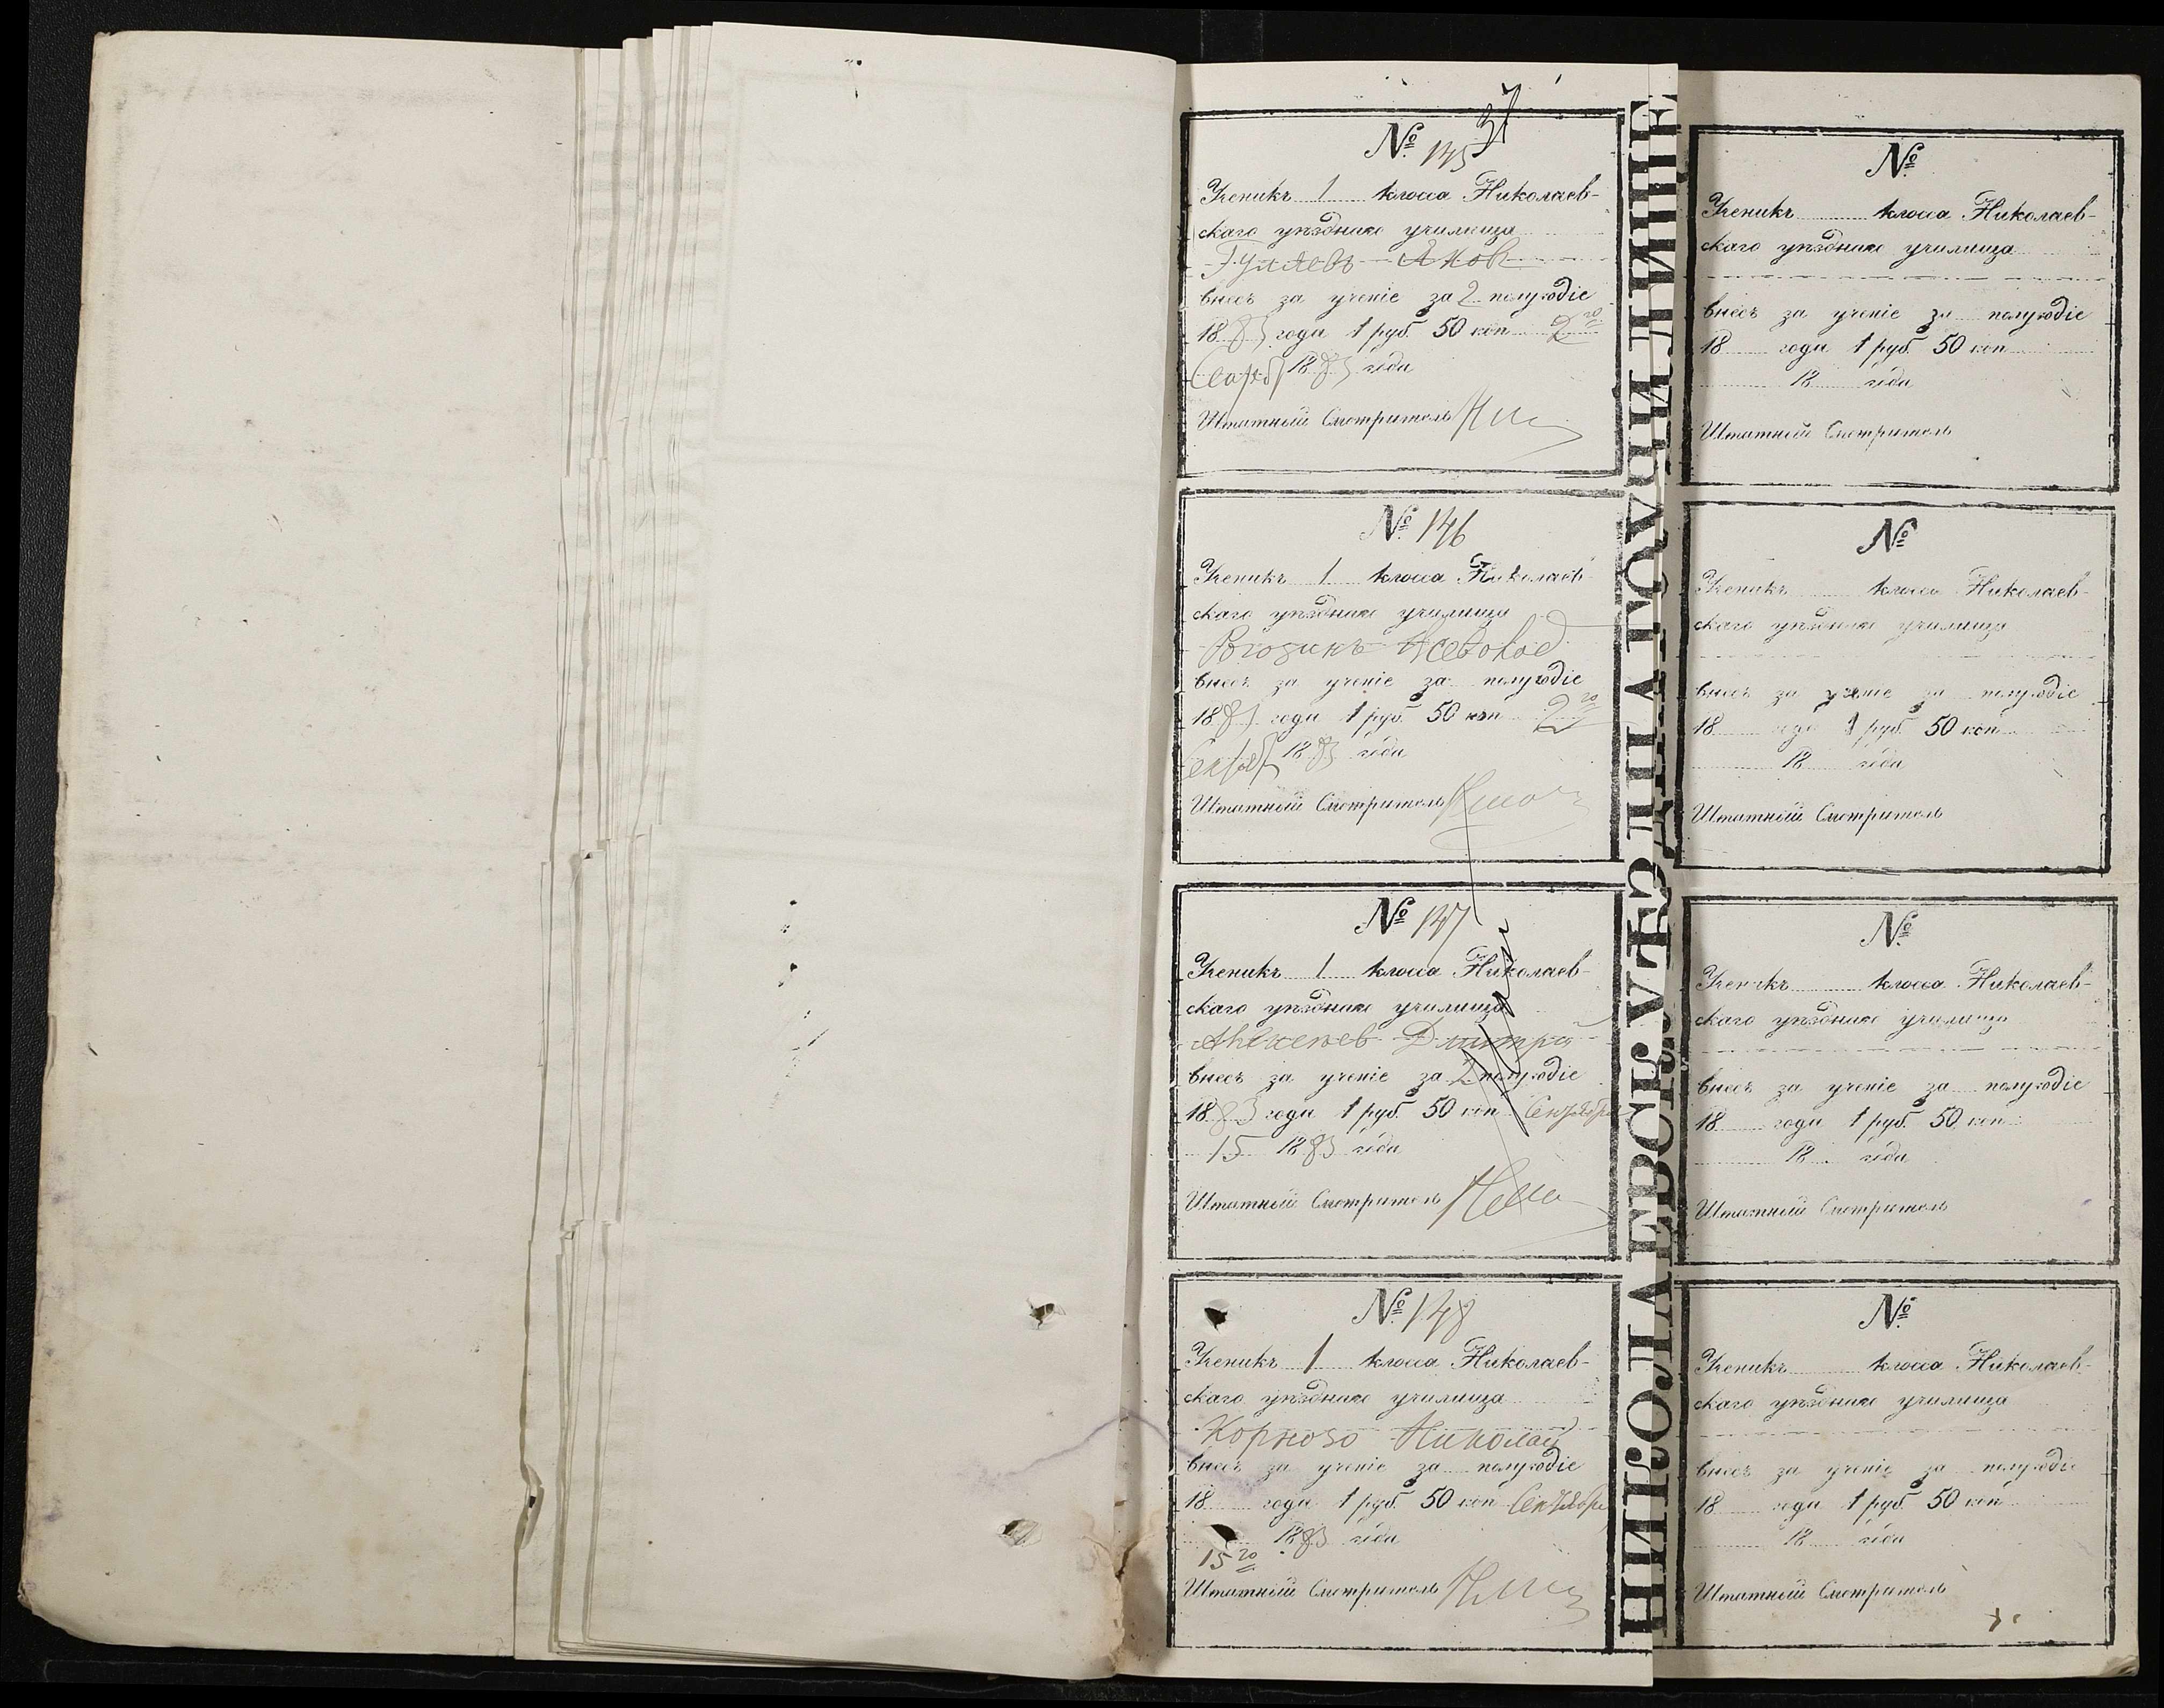 37
№ 145
Ученикъ 1 класса Николаев-
скаго уѣзднаго училища
Яковъ
внесъ за ученіе за 2 полугодіе
1883 года 1 руб. 50 коп. 2го
1883 года
Штатный Смотритель
№ 146
Ученикъ 1 класса Николаев-
скаго уѣзднаго училища
Рогозинъ Всеволод
внесъ за ученіе за полугодіе
1883 года 1 руб. 50 коп. 2го
1883 года
Штатный Смотритель
№ 147
Ученикъ 1 класса Николаев-
скаго уѣзднаго училища
Дмитрій
внесъ за ученіе за 2 полугодіе
1883 года 1 руб. 50 коп. Сентября
15 1883 года
Штатный Смотритель
№ 148
Ученикъ 1 класса Николаев-
скаго уѣзднаго училища
Николай
внесъ за ученіе за полугодіе
18 года 1 руб. 50 коп. Сентября
1883 года
15го
Штатный Смотритель
НИКОЛАЕВСК. УѢЗДНАГО УЧИЛИЩЕ
№
Ученикъ класса Николаев-
скаго уѣзднаго училища
внесъ за ученіе за полугодіе
18 года 1 руб. 50 коп.
18 года
Штатный Смотритель
№
Ученикъ класса Николаев-
скаго уѣзднаго училища
внесъ за ученіе за полугодіе
18 года 1 руб. 50 коп.
18 года
Штатный Смотритель
№
Ученикъ класса Николаев-
скаго уѣзднаго училища
внесъ за ученіе за полугодіе
18 года 1 руб. 50 коп.
18 года
Штатный Смотритель
№
Ученикъ класса Николаев-
скаго уѣзднаго училища
внесъ за ученіе за полугодіе
18 года 1 руб. 50 коп.
18 года
Штатный Смотритель